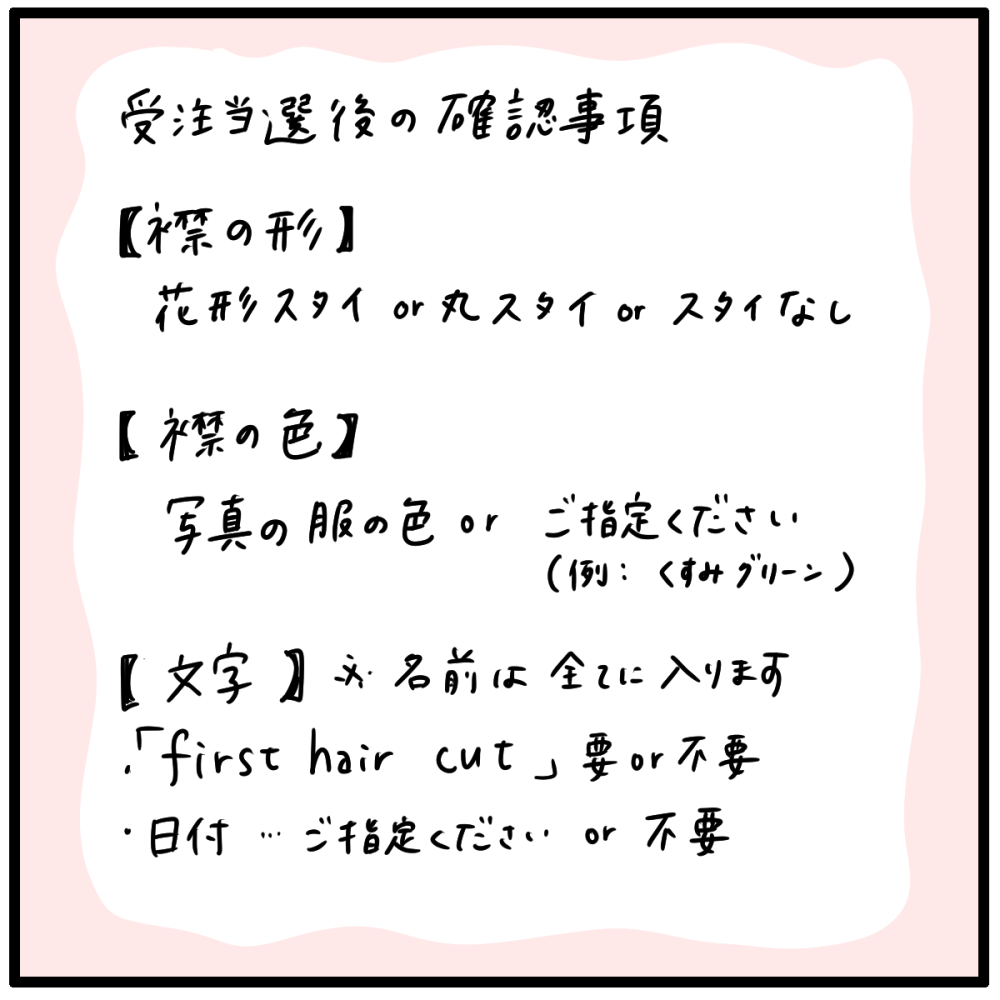 受注当選後の確認事項
【襟の形】
花形スタイ or 丸スタイ or スタイなし
【襟の色】
写真の服の色 or ご指定ください
(例：くすみグリーン)
【文字】※名前は全てに入ります
・「first hair cut」要or不要
・日付…ご指定ください or 不要